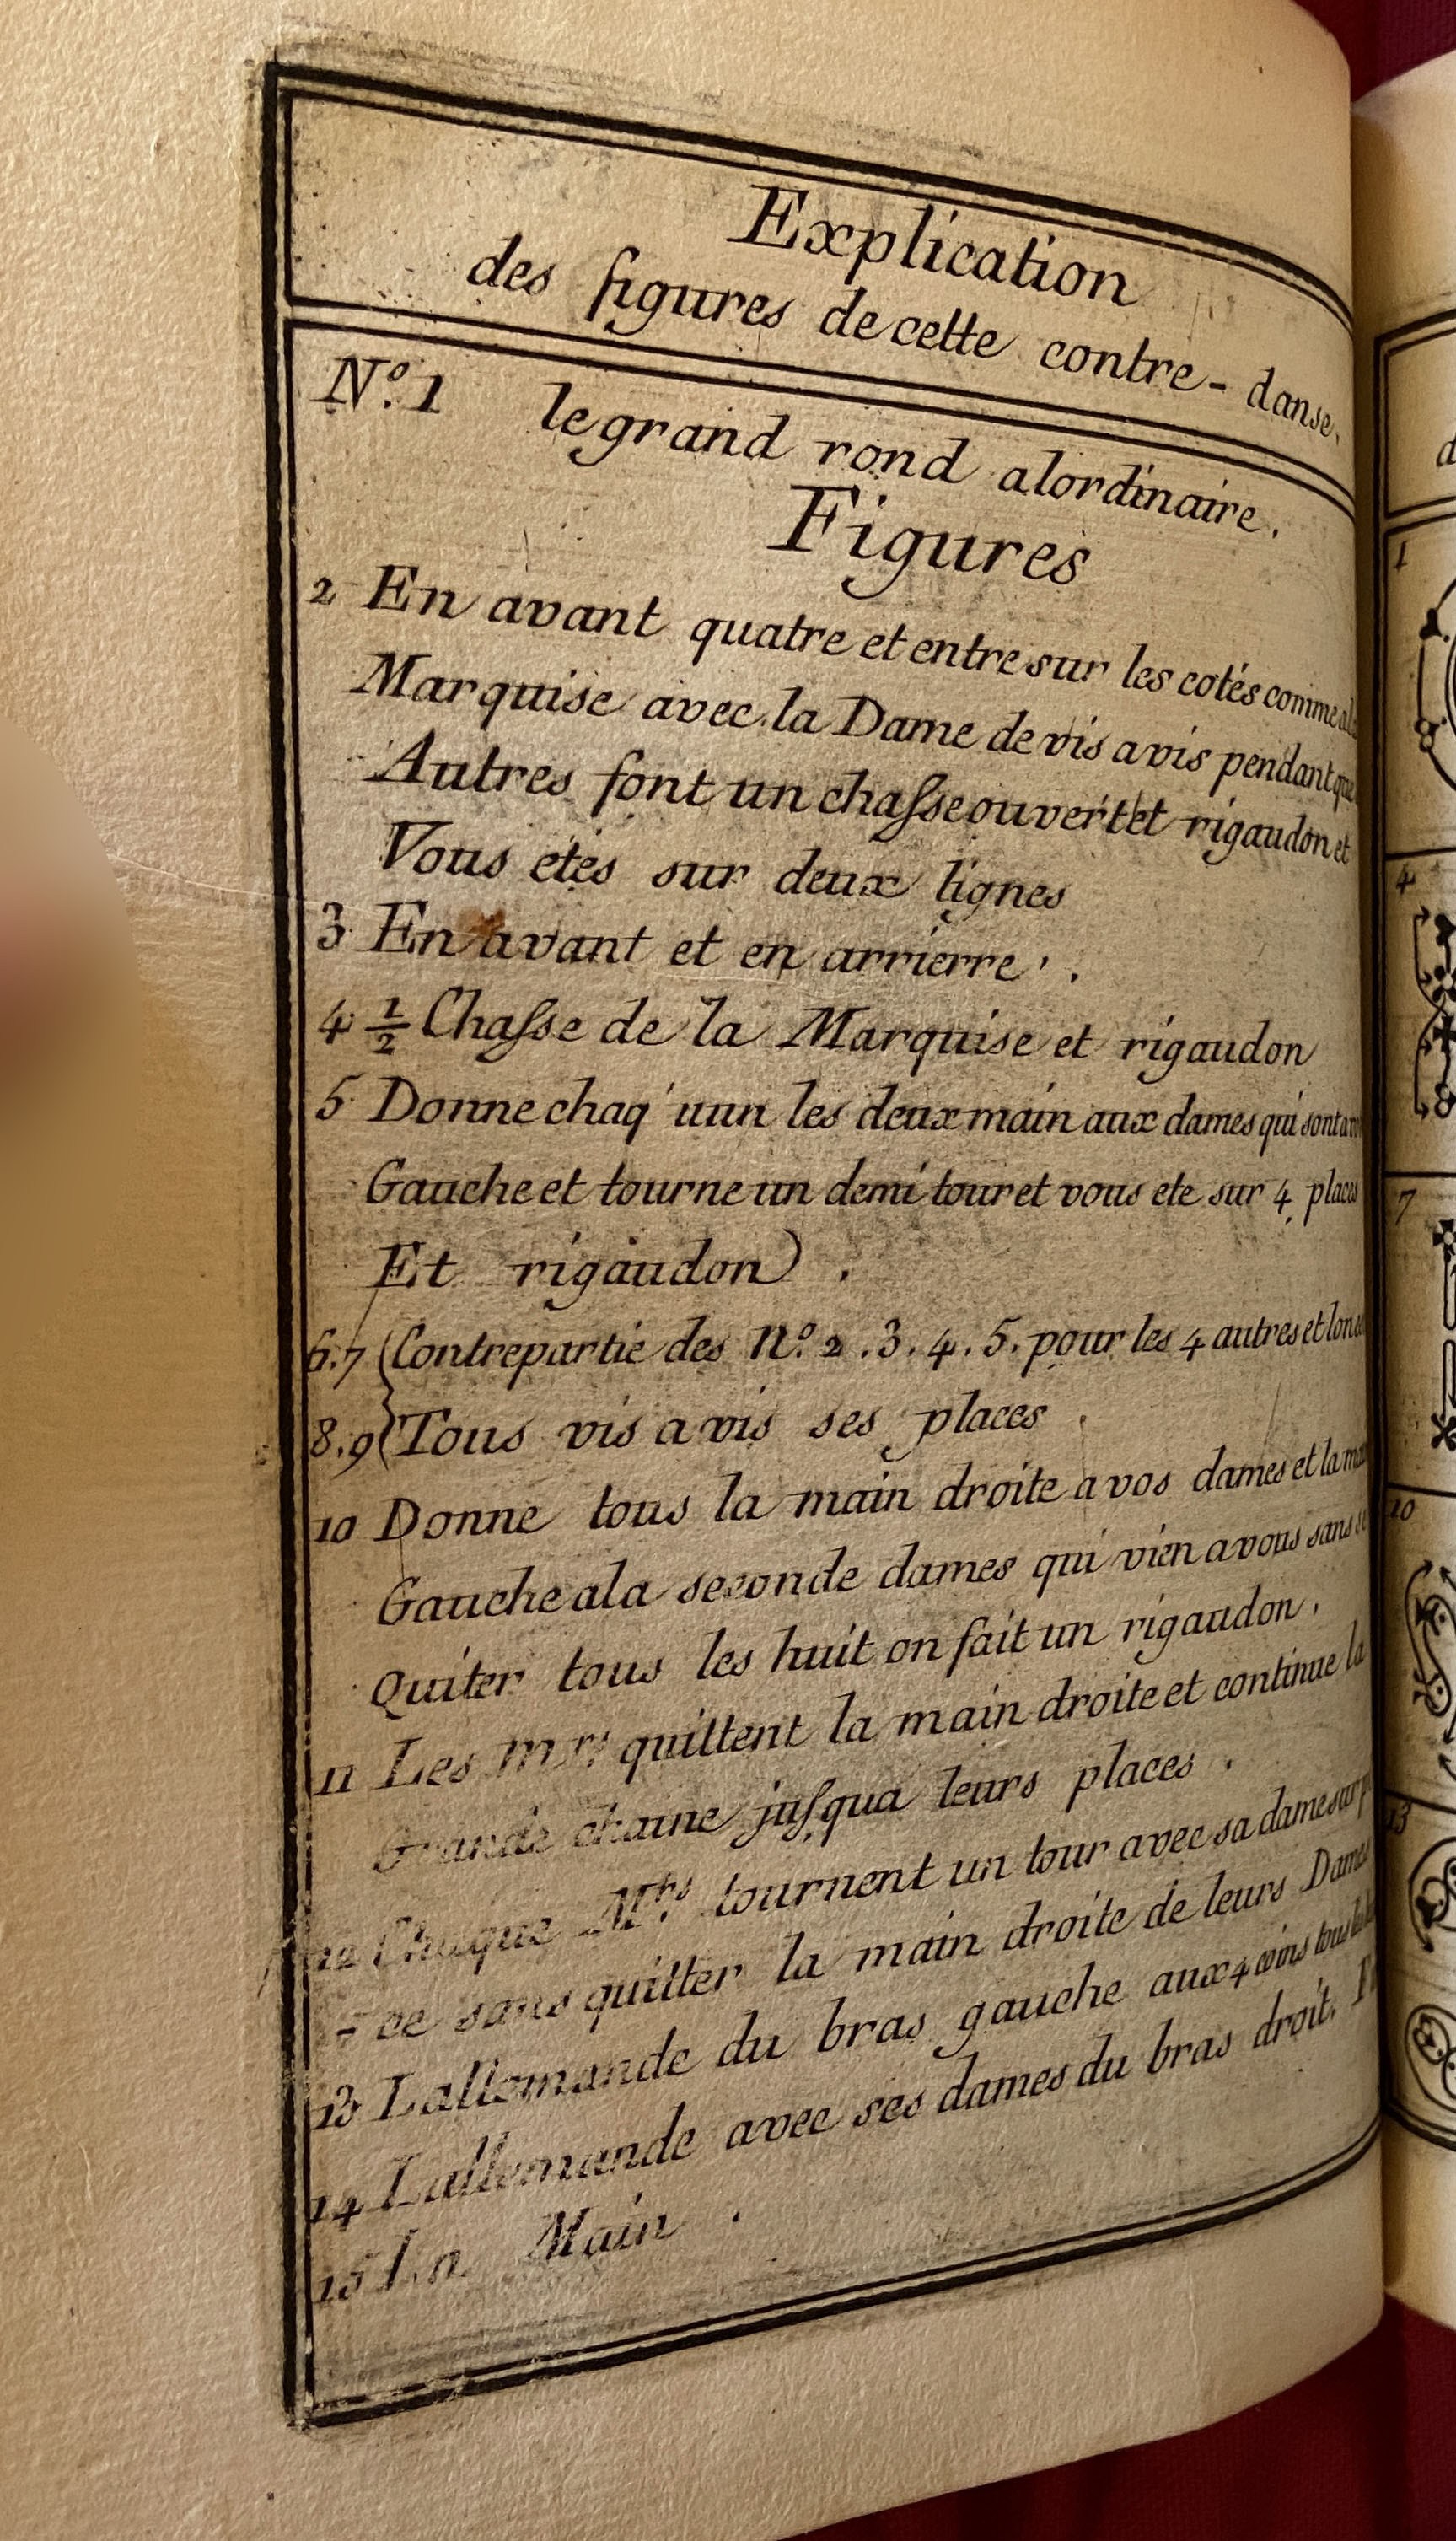 Explication
des figures de cette contre-danse.
No. 1 le grand rond alordinaire.
Figures
2 En avant quatre et entre sur les cotés comme ala
Marquise avec la Dame de vis a vis pendant que
Autres font un chasse ouvert et rigaudon et
Vous etes sur deux lignes
3 En avant et en arrierre.
4 1/2 Chasse de la Marquise et rigaudon
5 Donne chaq'uun les deux main aux dames qui sont
Gauche et tourne un demi tour et vous ete sur 4 places
Et rigaudon.
6.7 Contrepartie des No. 2.3.4.5. pour les 4 autres et
8.9 Tous vis a vis ses places.
10 Donne tous la main droite a vos dames et la
Gauche ala seconde dames qui vien a vous sans
Quiter tous les huit on fait un rigaudon.
11 Les Mrs quittent la main droite et continue la
Grande chaine jusqua leurs places.
12 Chaque Mrs tournent un tour avec sa dame sur
ce sans quitter la main droite de leurs Dames
13 Lallemande du bras gauche aux 4 coins tous
14 Lallemande avec ses dames du bras droit.
15 La Main.
1
4
7
10
13